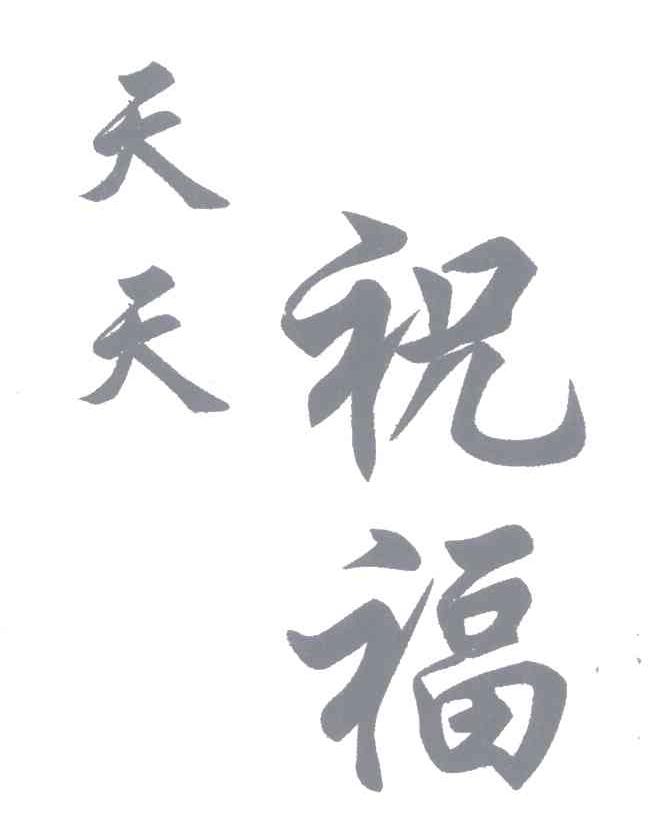 祝福
天天